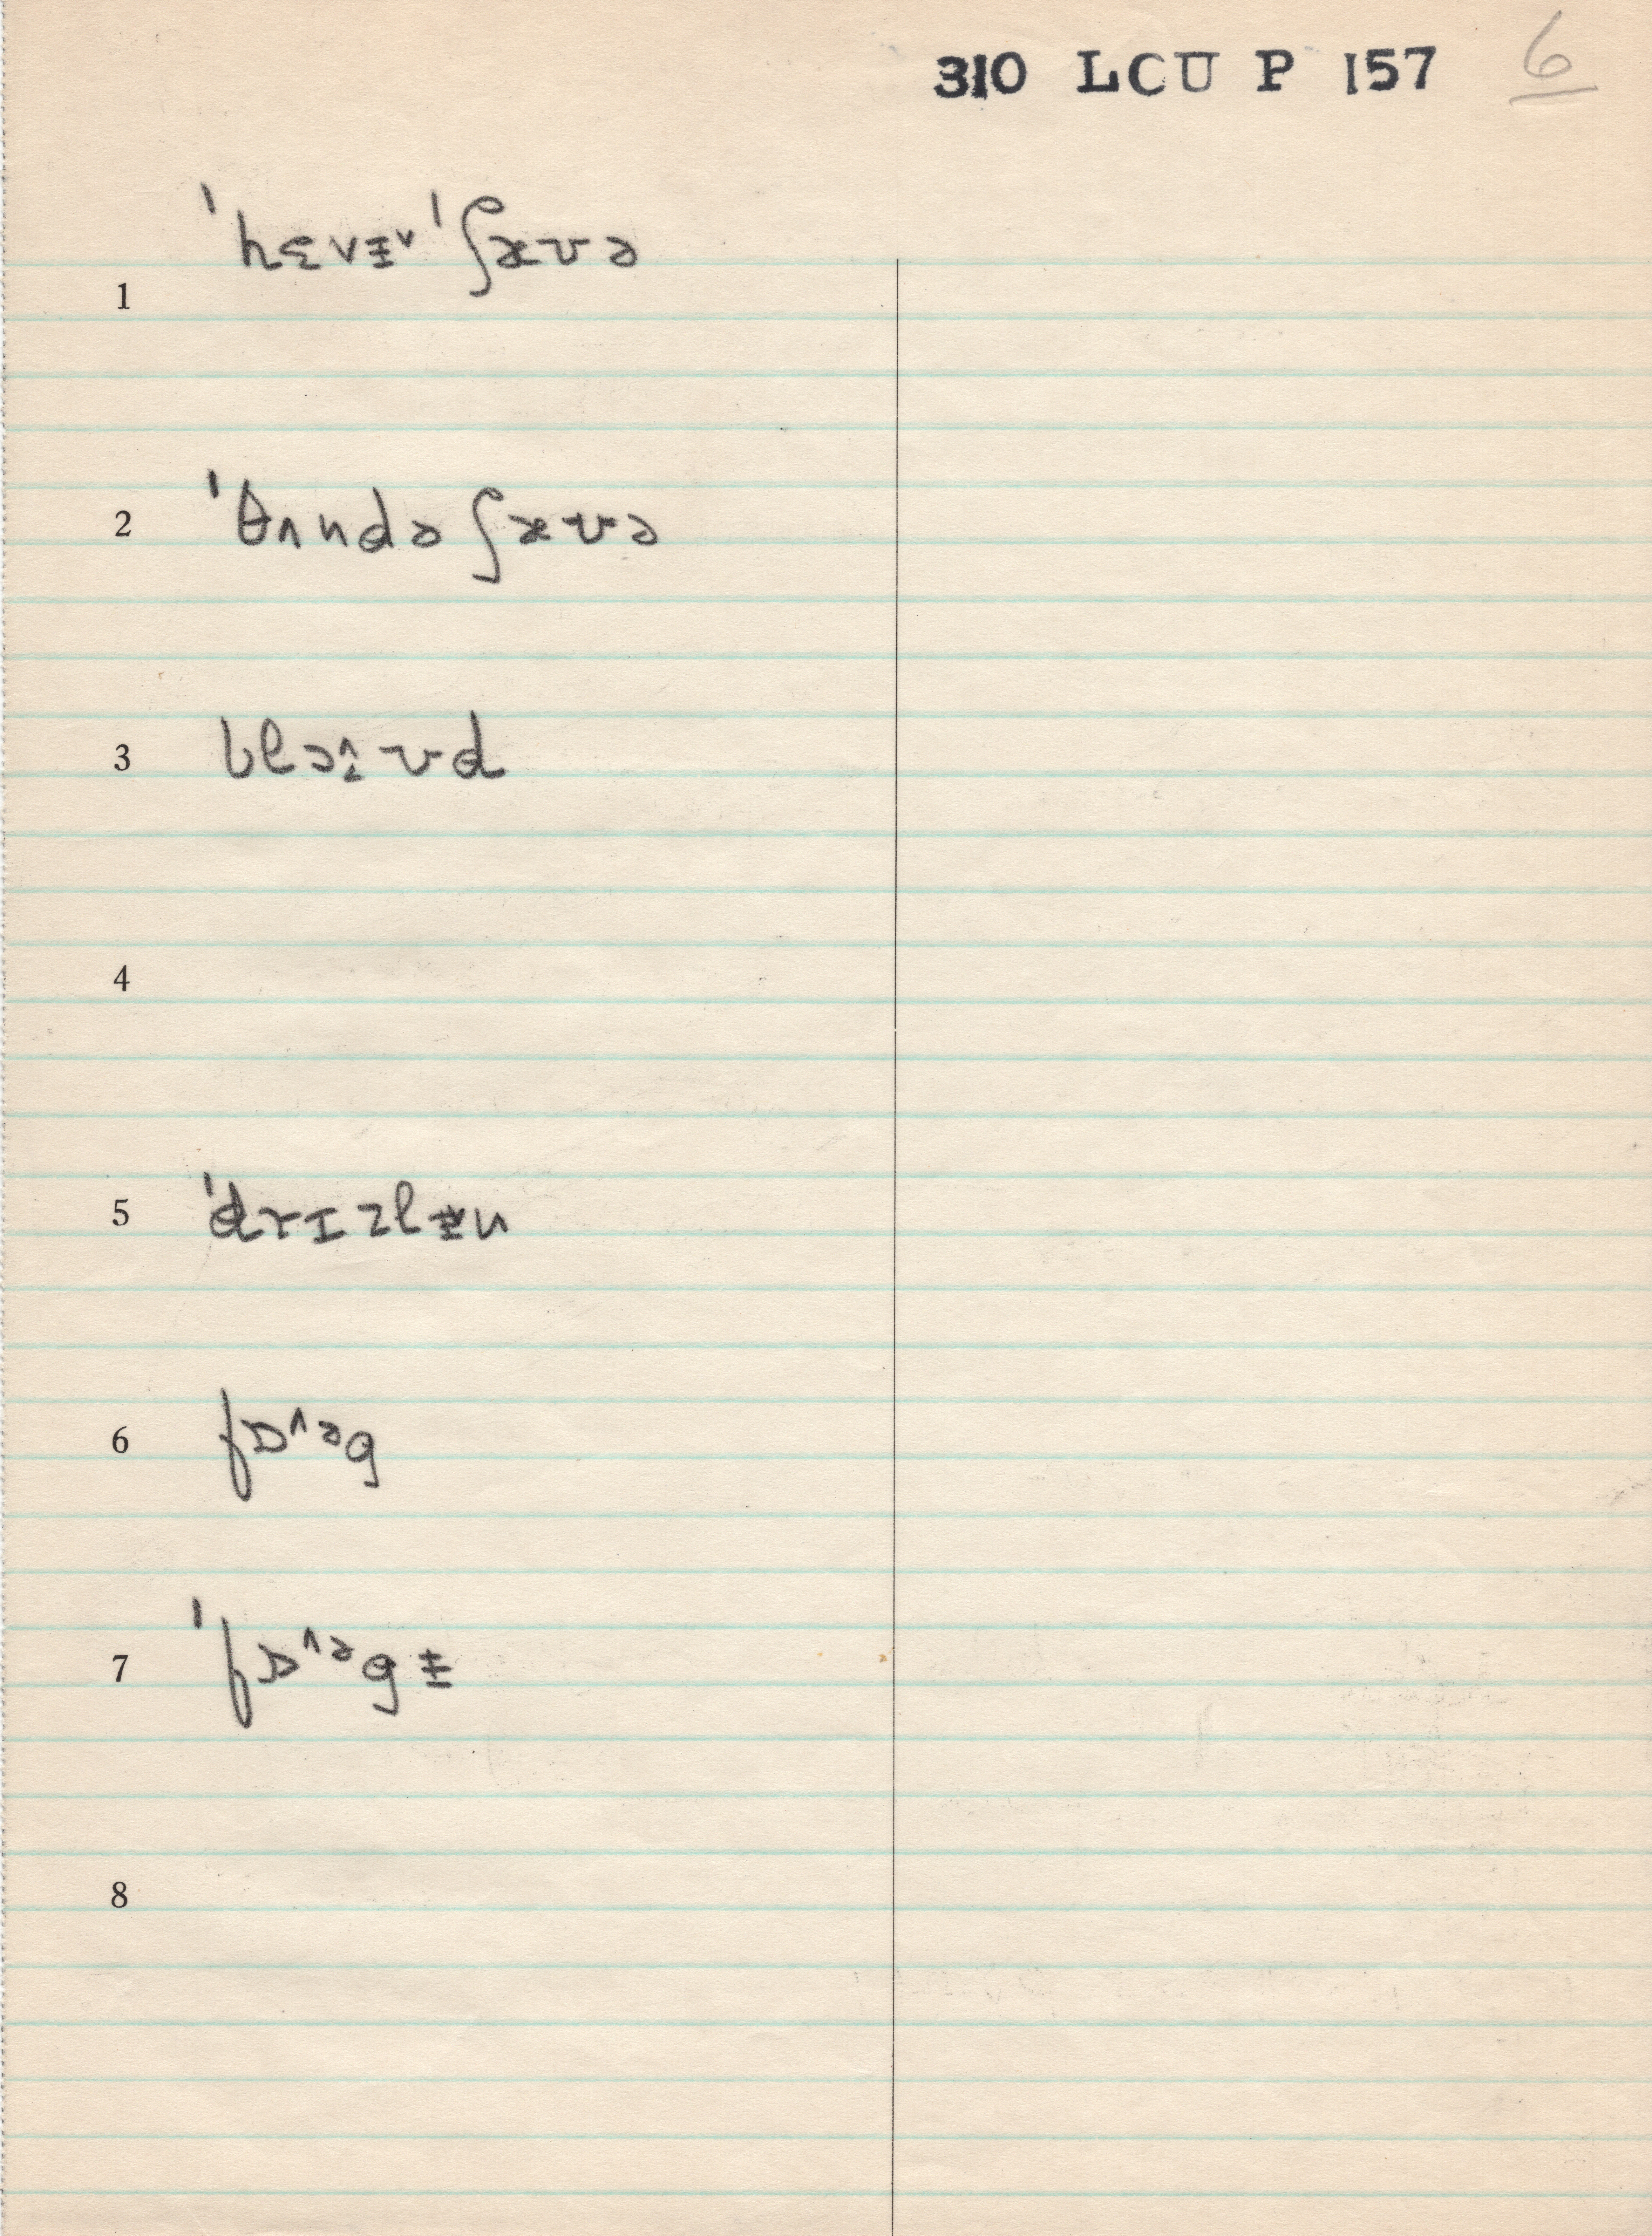 310 LCU P 157 6
1 ˈhɛvɨ˅ˈʃæʊə
2 ˈθʌndəʃæʊə
3 blɔ˄ɪʊd
4
5 ˈdrɪzlɨ˅n
6 fɒ˄ᵊg
7 ˈfɒ˄ᵊgɨ
8